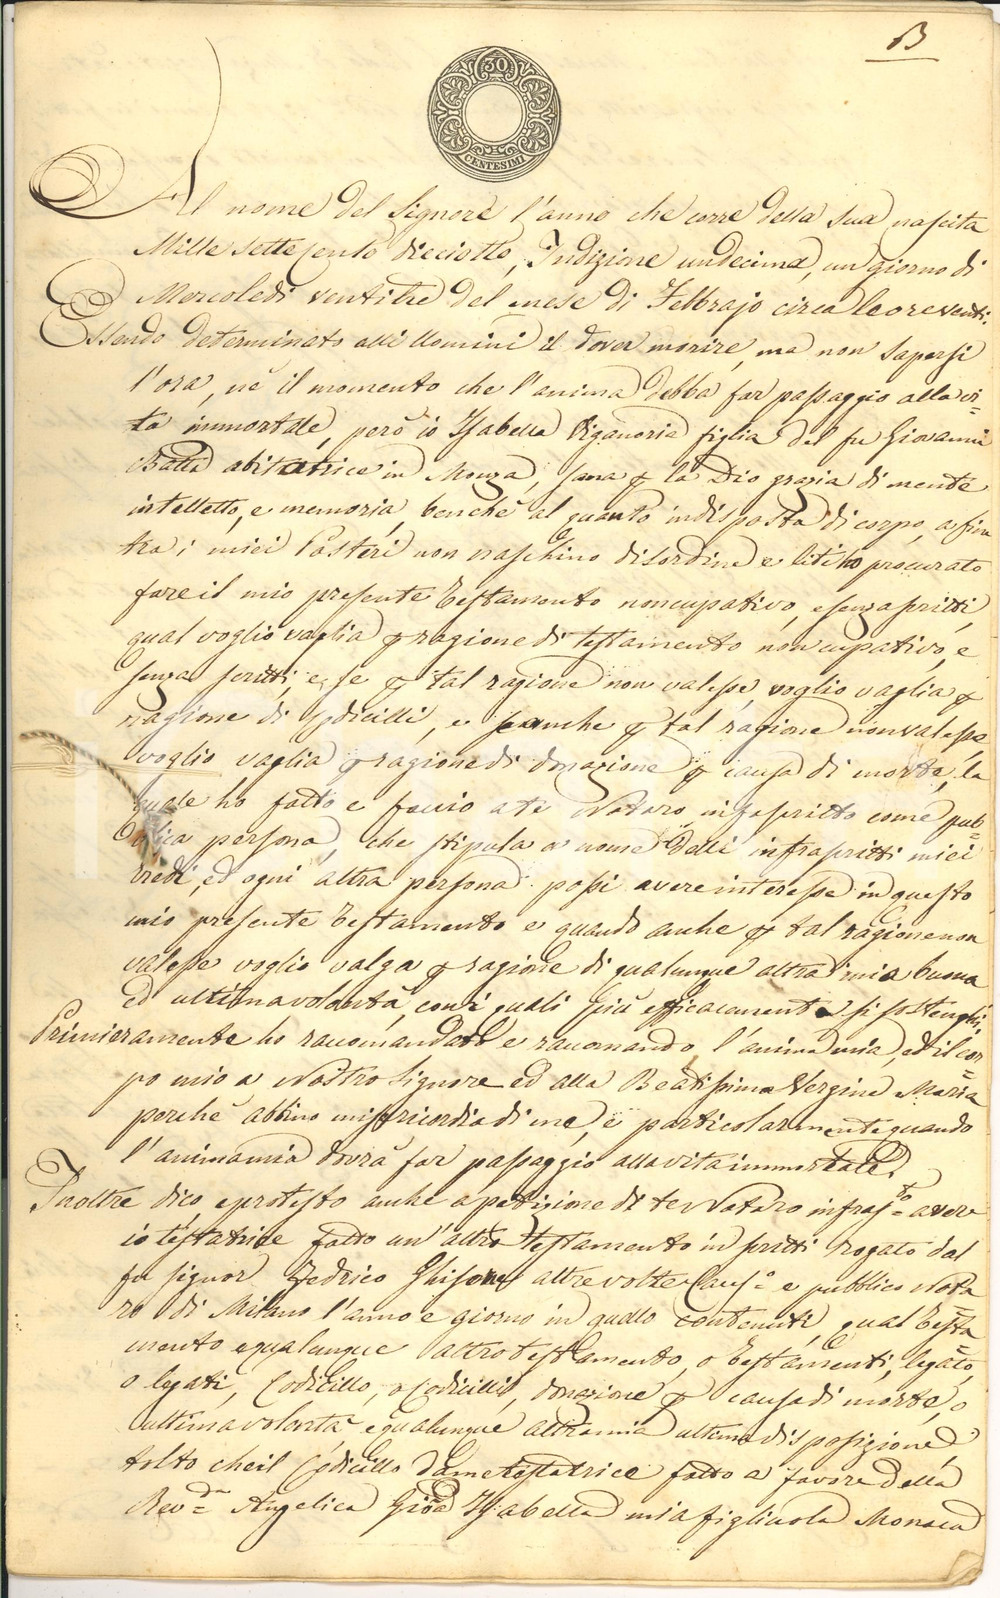 B
30
CENTESIMI
Al nome del Signore l'anno che corre della sua nascita
Mille settecento dieciotto, Indizione undecima, un giorno di
Mercoledì ventitre del mese di Febbrajo circa le ore venti.
Essendo determinato alli Uomini il dover morire, ma non sapersi
l'ora, nè il momento che l'anima debba far passaggio alla vi=
ta immortale, però io Isabella Viganoria figlia del fu Giovanni
Batta abitatrice in Monza, sana p la Dio grazia di mente
intelletto, e memoria, benchè al quanto indisposta di corpo, a fin
tra i miei Posteri non naschino disordine e liti ho procurato
fare il mio presente Testamento noncupativo, e senza scritti,
qual voglio vaglia p ragione di testamento noncupativo, e
senza scritti, e, se p tal ragione non valesse, voglio vaglia p
ragione di Codicilli, e se anche p tal ragione non valesse
voglio vaglia p ragione di donazione p causa di morte, la
quale ho fatto e faccio a te Notaro infrascritto come pub=
blica persona, che stipula a nome delli infrascritti miei
eredi, ed ogni altra persona possi avere interesse in questo
mio presente Testamento e quando anche p tal ragione non
valesse voglio valga p ragione di qualunque altra mia buona
ed ultima volontà, con i quali più efficacemente si sostenghi.
Primieramente ho raccomandato e raccomando l'anima mia, ed il cor=
po mio a Nostro Signore ed alla Beatissima Vergine Maria
perchè abbino misericordia di me, e particolarmente quando
l'anima mia dovrà far passaggio alla vita immortale.
Inoltre dico, e protesto anche a petizione di te Notaro infras.to avere
io testatrice fatto un'altro testamento in scritti rogato dal
fu Signor Fedrico Ghisone altre volte Caus.o e pubblico Nota
ro di Milano l'anno e giorno in quello contenuti, qual Testa=
mento e qualunque altro testamento, o Testamenti, legato,
o legati, Codicillo, o Codicilli, donazione p causa di morte, o
ultima volontà e qualunque altra mia ultima disposizione,
tolto che il Codicillo da me testatrice fatto a favore della
Rev.da Angelica Gioa Isabella mia figliuola Monaca